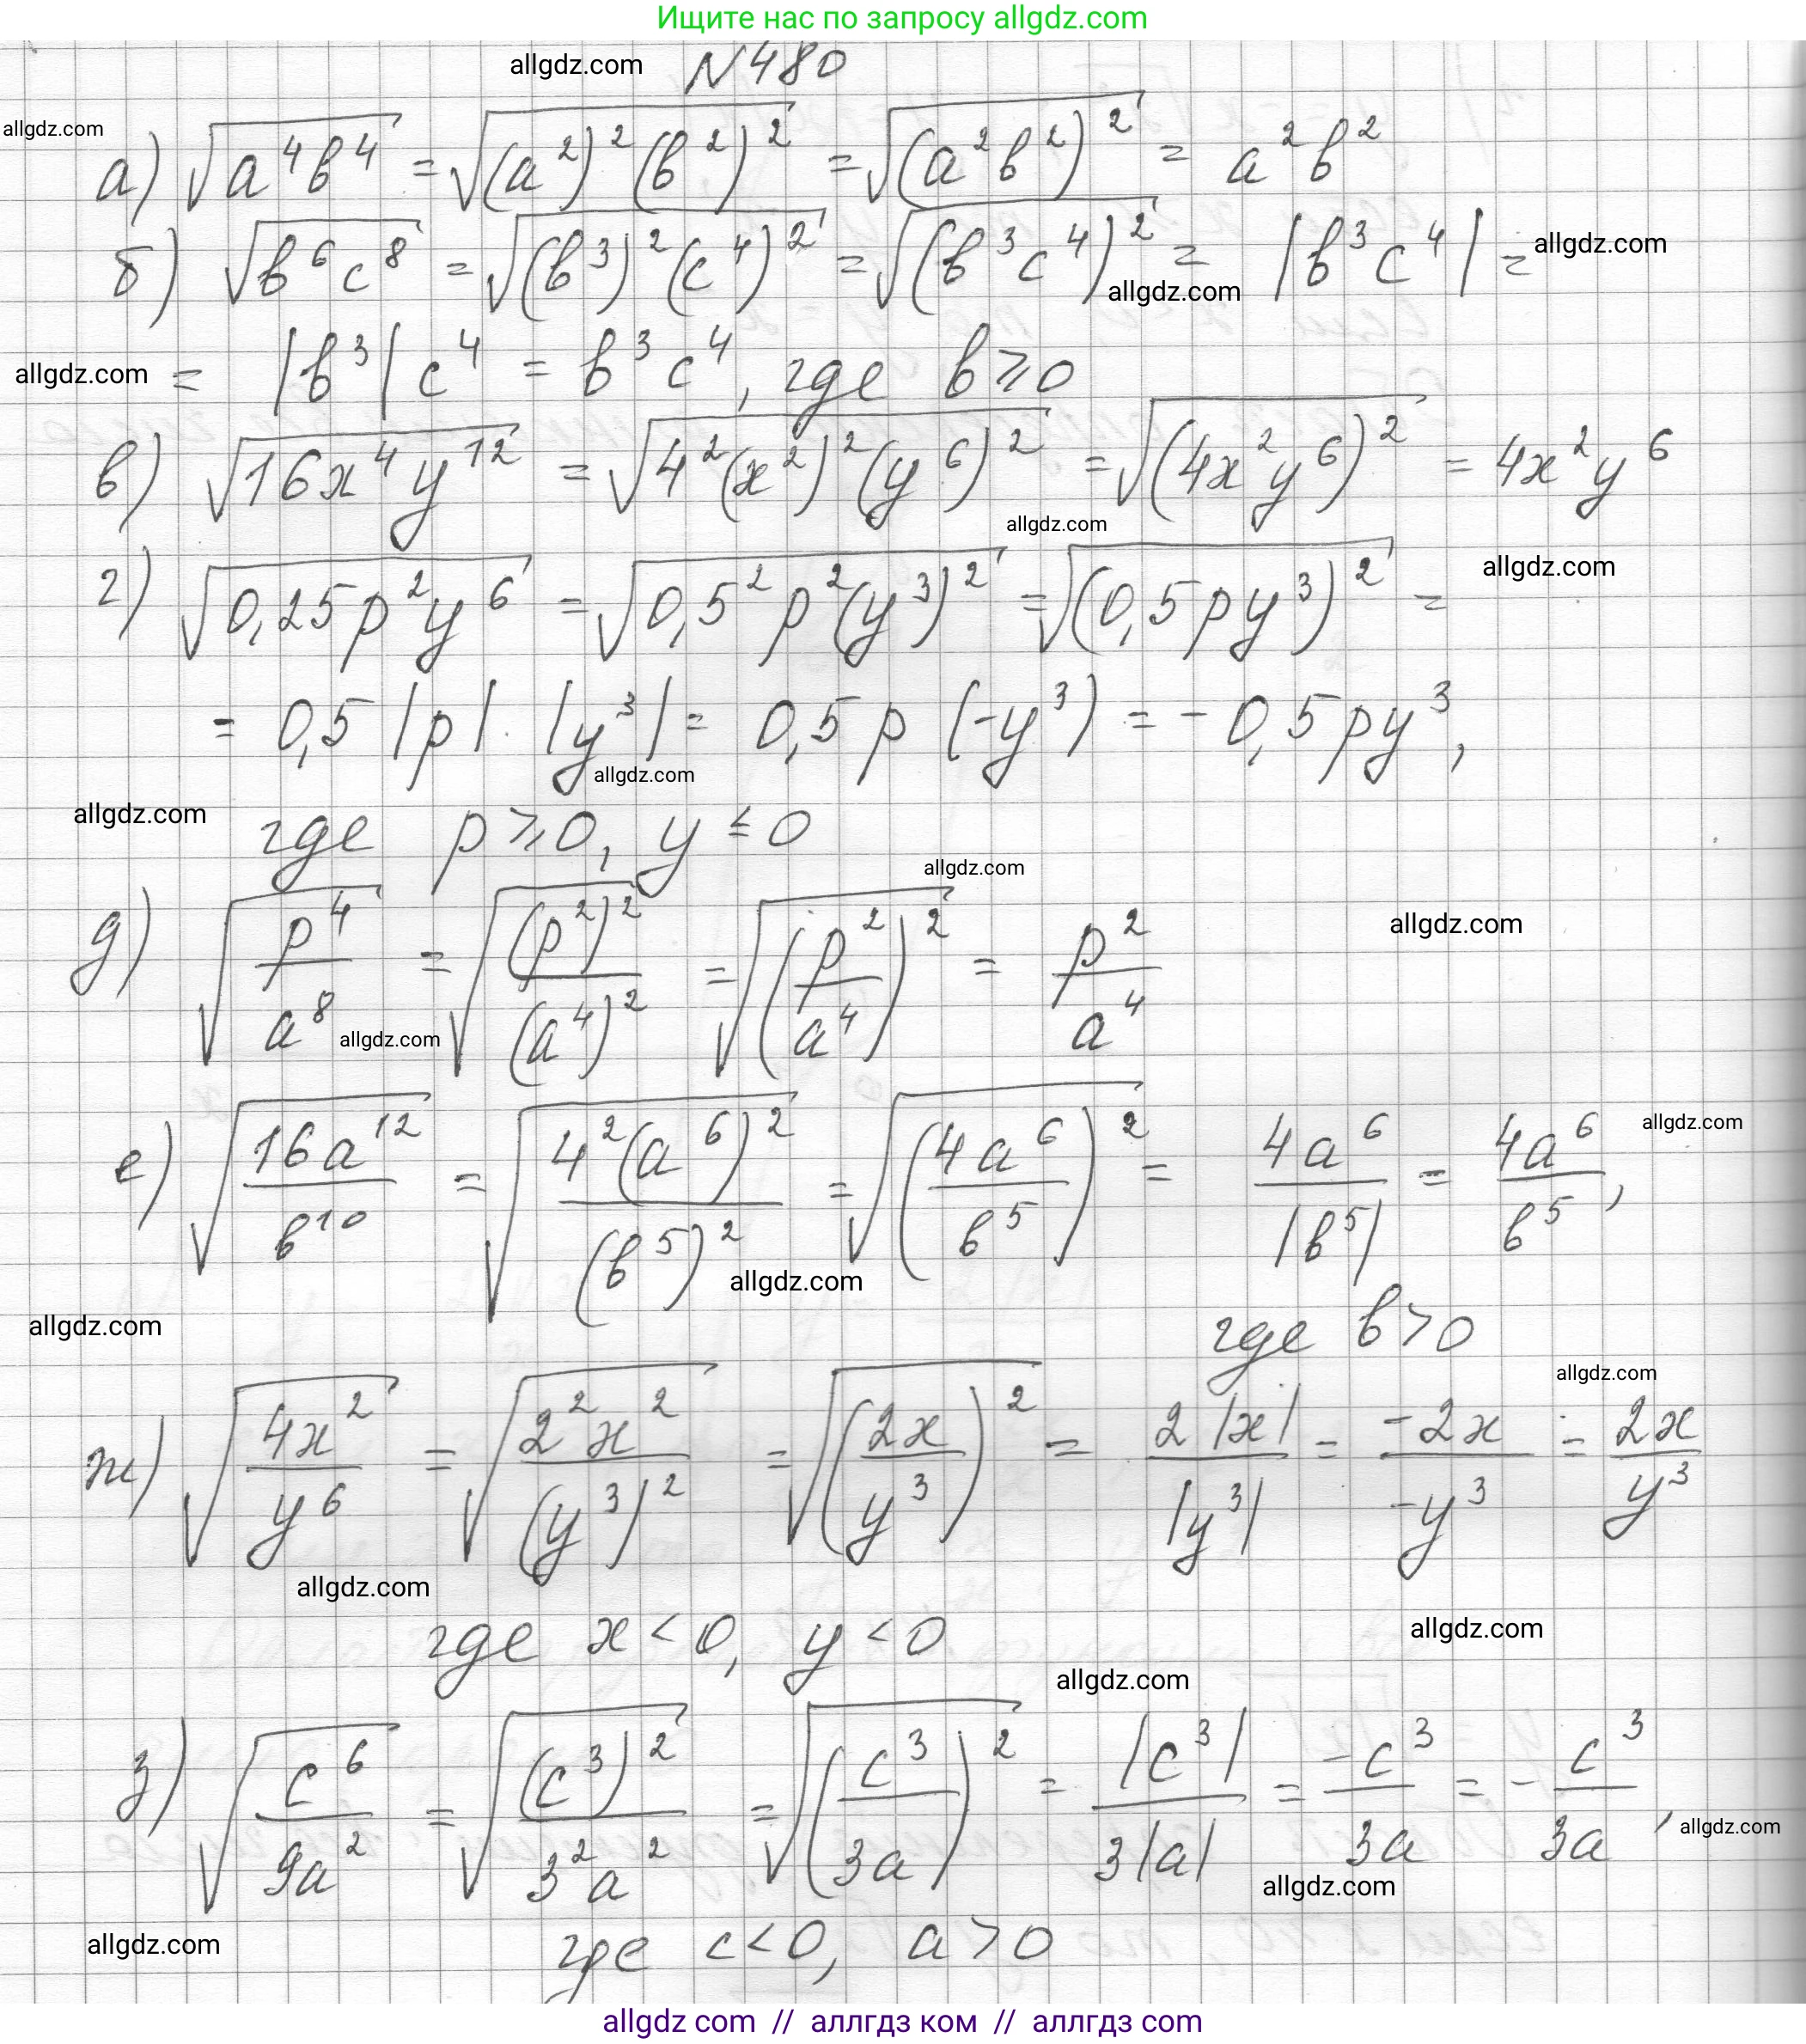 Ищите нас по запросу allgdz.com
allgdz.com N480
allgdz.com
а) √(a⁴b⁴) = √((a²)²(b²)²) = √((a²b²)²) = a²b²
б) √(b⁶c⁸) = √((b³)²(c⁴)²) = √((b³c⁴)²) = |b³c⁴| = allgdz.com
allgdz.com
allgdz.com = |b³|c⁴ = b³c⁴, где b ⩾ 0
в) √(16x⁴y¹²) = √(4²(x²)²(y⁶)²) = √((4x²y⁶)²) = 4x²y⁶
allgdz.com
г) √(0,25p²y⁶) = √(0,5²p²(y³)²) = √((0,5py³)²) = allgdz.com
= 0,5|p|·|y³| = 0,5p(-y³) = -0,5py³,
allgdz.com
allgdz.com где p ⩾ 0, y ≤ 0
allgdz.com
д) √(p⁴/a⁸) = √((p²)²/(a⁴)²) = √((p²/a⁴)²) = p²/a⁴ allgdz.com
allgdz.com
е) √(16a¹²/b¹⁰) = √(4²(a⁶)²/(b⁵)²) = √((4a⁶/b⁵)²) = 4a⁶/|b⁵| = 4a⁶/b⁵, allgdz.com
allgdz.com
allgdz.com где b > 0
allgdz.com
ж) √(4x²/y⁶) = √(2²x²/(y³)²) = √((2x/y³)²) = 2|x|/|y³| = -2x/-y³ = 2x/y³
allgdz.com
где x < 0, y < 0 allgdz.com
allgdz.com
з) √(c⁶/9a²) = √((c³)²/3²a²) = √((c³/3a)²) = |c³|/3|a| = -c³/3a = -c³/3a, allgdz.com
allgdz.com
allgdz.com где c < 0, a > 0
allgdz com // аллгдз ком // аллгдз com